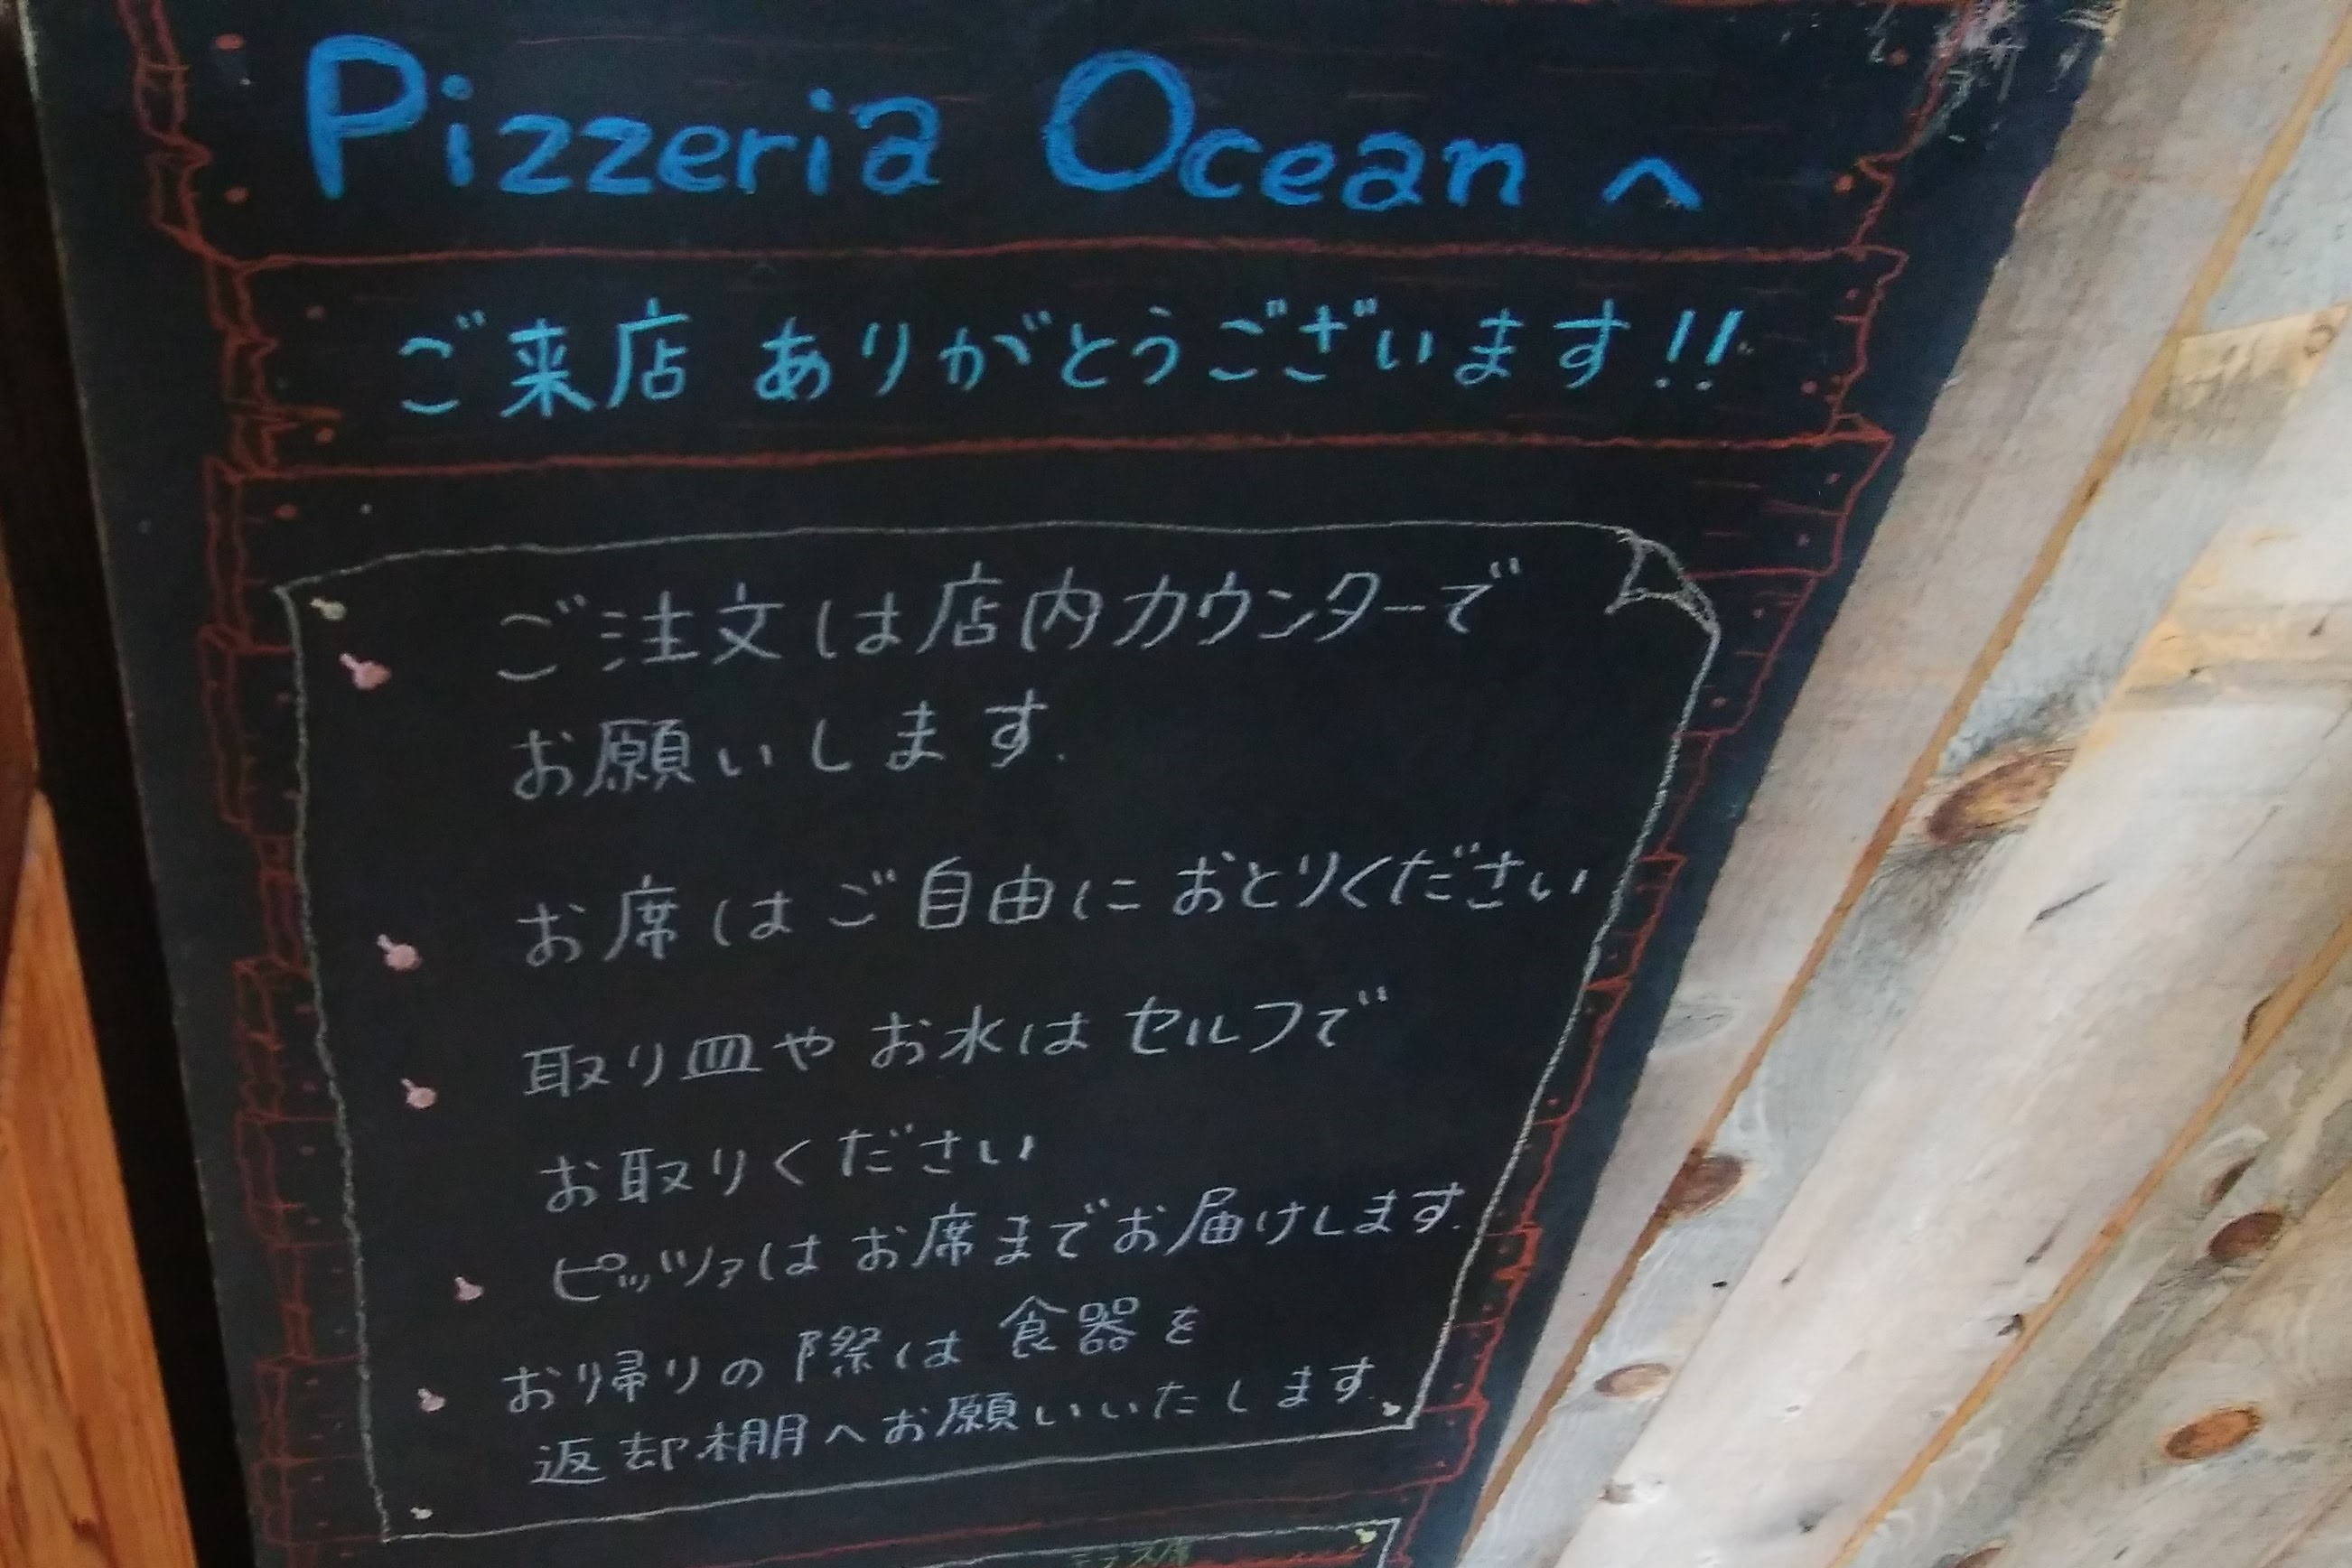 Pizzeria Ocean へ
ご来店 ありがとうございます!!
ご注文は店内カウンターで
お願いします.
お席はご自由に おとりください
取り皿や お水は セルフで
お取りください
ピッツァは お席までお届けします.
お帰りの際は 食器を
返却棚へお願いいたします.
テラス席